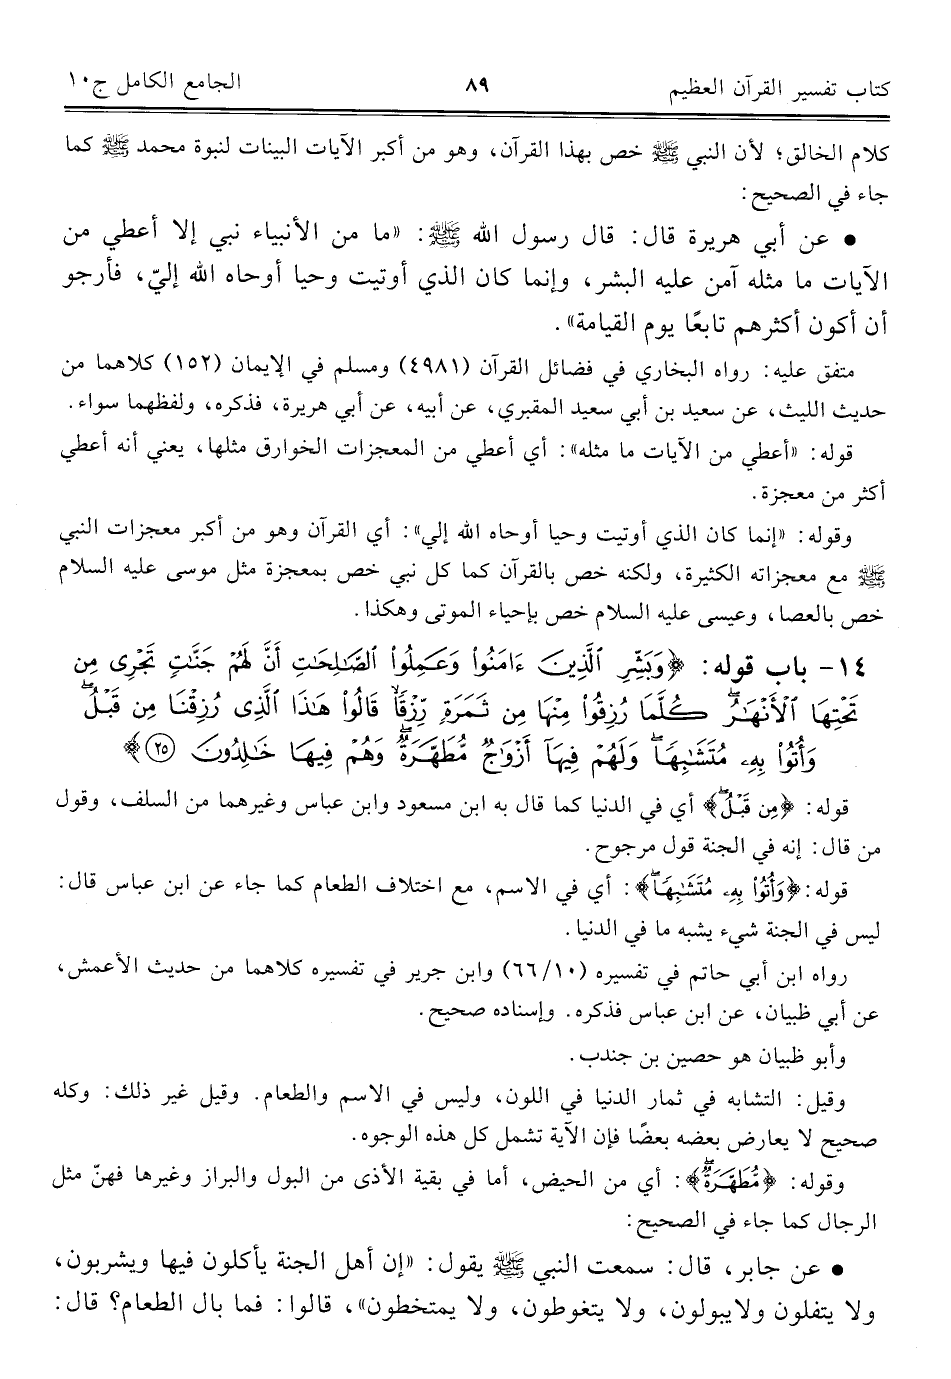 كتاب تفسير القرآن العظيم ٨٩ الجامع الكامل ج١٠
كلام الخالق؛ لأن النبي ﷺ خص بهذا القرآن، وهو من أكبر الآيات البينات لنبوة محمد ﷺ كما
جاء في الصحيح:
• عن أبي هريرة قال: قال رسول الله ﷺ: «ما من الأنبياء نبي إلا أعطي من
الآيات ما مثله آمن عليه البشر، وإنما كان الذي أوتيت وحيا أوحاه الله إليّ، فأرجو
أن أكون أكثرهم تابعًا يوم القيامة».
متفق عليه: رواه البخاري في فضائل القرآن (٤٩٨١) ومسلم في الإيمان (١٥٢) كلاهما من
حديث الليث، عن سعيد بن أبي سعيد المقبري، عن أبيه، عن أبي هريرة، فذكره، ولفظهما سواء.
قوله: «أعطي من الآيات ما مثله»: أي أعطي من المعجزات الخوارق مثلها، يعني أنه أعطي
أكثر من معجزة.
وقوله: «إنما كان الذي أوتيت وحيا أوحاه الله إلي»: أي القرآن وهو من أكبر معجزات النبي
ﷺ مع معجزاته الكثيرة، ولكنه خص بالقرآن كما كل نبي خص بمعجزة مثل موسى عليه السلام
خص بالعصا، وعيسى عليه السلام خص بإحياء الموتى وهكذا.
١٤- باب قوله: ﴿وَبَشِّرِ ٱلَّذِينَ ءَامَنُوا۟ وَعَمِلُوا۟ ٱلصَّـٰلِحَـٰتِ أَنَّ لَهُمْ جَنَّـٰتٍ تَجْرِى مِن
تَحْتِهَا ٱلْأَنْهَـٰرُ ۖ كُلَّمَا رُزِقُوا۟ مِنْهَا مِن ثَمَرَةٍ رِّزْقًا ۙ قَالُوا۟ هَـٰذَا ٱلَّذِى رُزِقْنَا مِن قَبْلُ ۖ
وَأُتُوا۟ بِهِۦ مُتَشَـٰبِهًا ۖ وَلَهُمْ فِيهَآ أَزْوَٰجٌ مُّطَهَّرَةٌ ۖ وَهُمْ فِيهَا خَـٰلِدُونَ (٢٥)﴾
قوله: ﴿مِن قَبْلُ ۖ﴾ أي في الدنيا كما قال به ابن مسعود وابن عباس وغيرهما من السلف، وقول
من قال: إنه في الجنة قول مرجوح.
قوله: ﴿وَأُتُوا۟ بِهِۦ مُتَشَـٰبِهًا ۖ﴾: أي في الاسم، مع اختلاف الطعام كما جاء عن ابن عباس قال:
ليس في الجنة شيء يشبه ما في الدنيا.
رواه ابن أبي حاتم في تفسيره (١٠/٦٦) وابن جرير في تفسيره كلاهما من حديث الأعمش،
عن أبي ظبيان، عن ابن عباس فذكره. وإسناده صحيح.
وأبو ظبيان هو حصين بن جندب.
وقيل: التشابه في ثمار الدنيا في اللون، وليس في الاسم والطعام. وقيل غير ذلك: وكله
صحيح لا يعارض بعضه بعضًا فإن الآية تشمل كل هذه الوجوه.
وقوله: ﴿مُّطَهَّرَةٌ ۖ﴾: أي من الحيض، أما في بقية الأذى من البول والبراز وغيرها فهنّ مثل
الرجال كما جاء في الصحيح:
• عن جابر، قال: سمعت النبي ﷺ يقول: «إن أهل الجنة يأكلون فيها ويشربون،
ولا يتفلون ولايبولون، ولا يتغوطون، ولا يمتخطون»، قالوا: فما بال الطعام؟ قال: